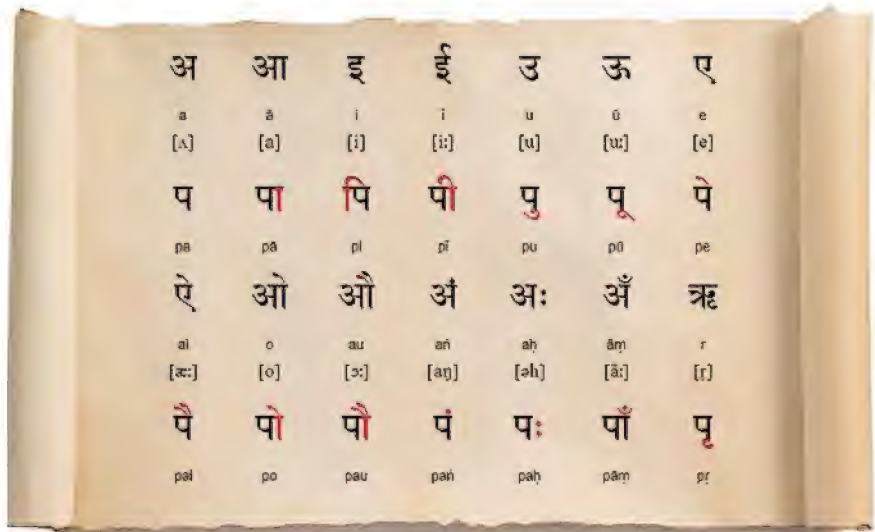 अ आ इ ई उ ऊ ए
a ā i i u ū e
[ʌ] [a] [i] [i:] [u] [u:] [e]
प पा पि पी पु पू पे
pa pā pi pī pu pū pe
ऐ ओ औ अं अः अँ ऋ
ai o au aṅ aḥ āṃ r
[æ:] [o] [ɔ:] [aŋ] [əh] [ã:] [ṛ]
पै पो पौ पं पः पाँ पृ
pai po pau paṅ paḥ pāṃ pṛ